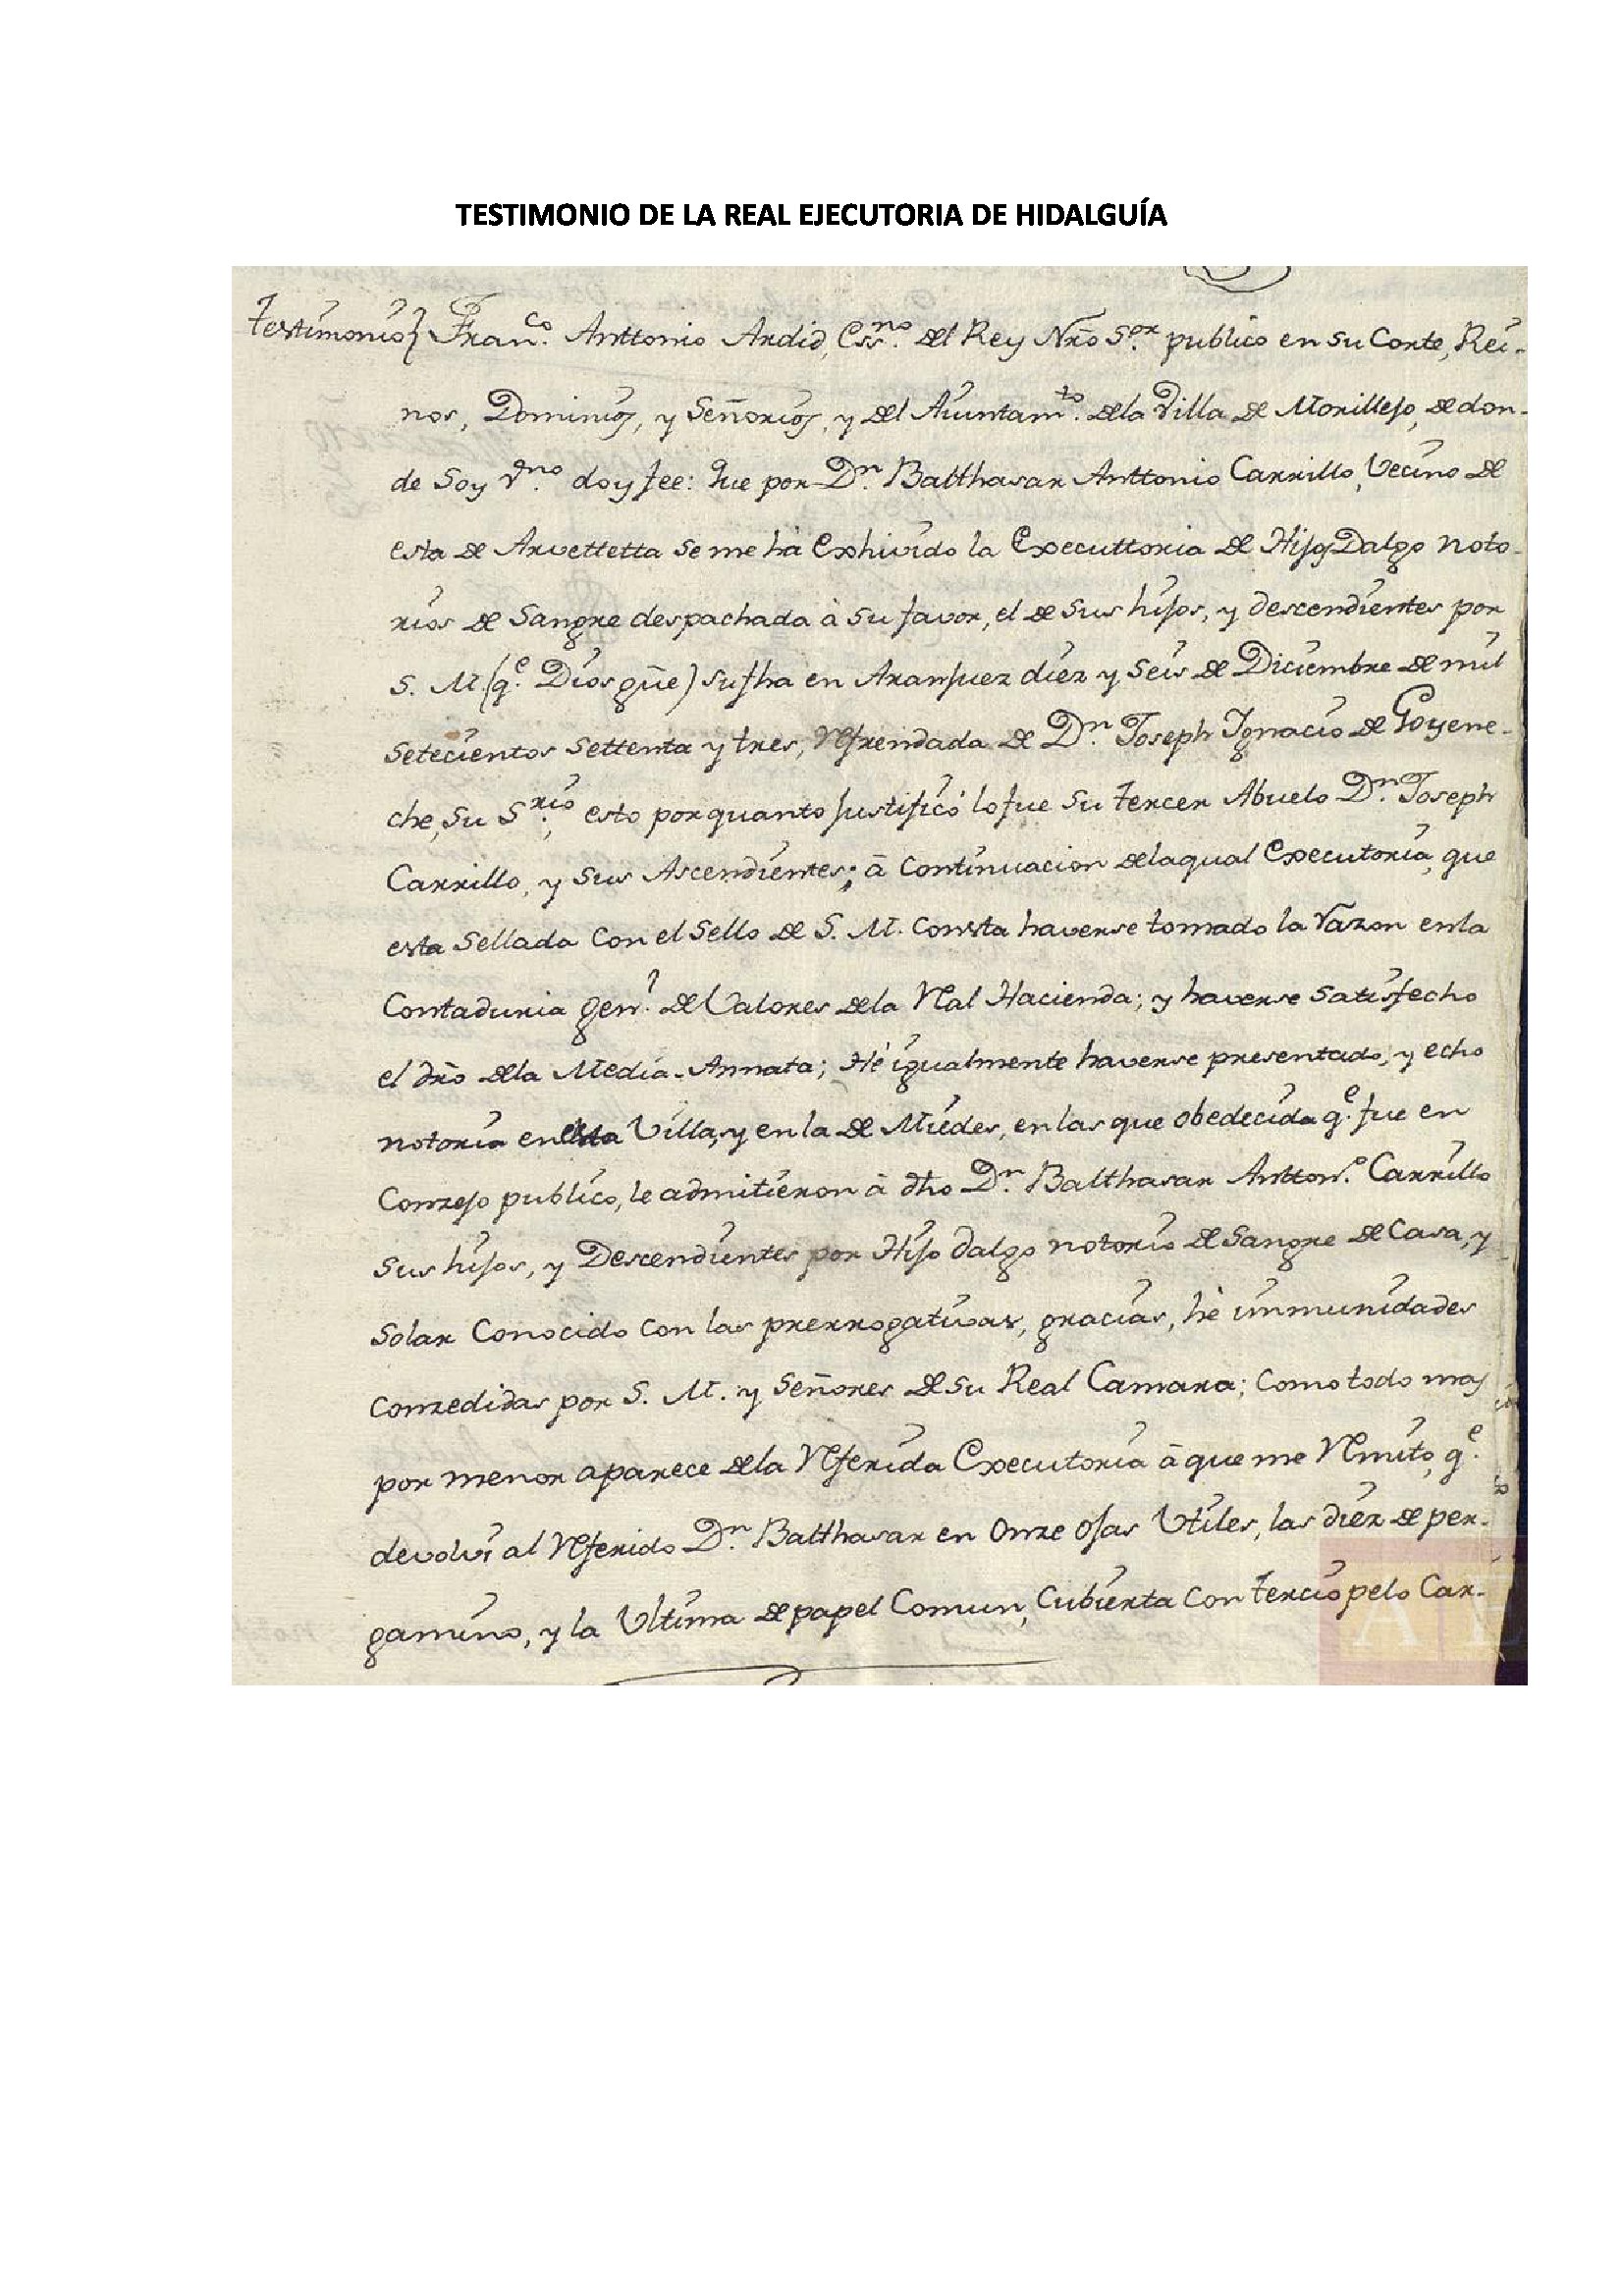 TESTIMONIO DE LA REAL EJECUTORIA DE HIDALGUÍA
Testimonio} Fran.co Anttonio Ardid, Essno. del Rey Nro S.or publico en su Corte, Rei-
nos, Dominios, y Señorios, y del Aiuntam.to de la Villa de Morillejo, de don-
de soy v.no doy fee: Que por D.n Balthasar Anttonio Carrillo, Vecino de
esta de Arvettetta se me há exhivido la Executtoria de HijosDalgo noto-
rios de Sangre despachada à su favor, el de sus hijos, y descendientes por
S. M. (q.e Dios gūe) su fha en Aranjuez diez y seis de Diciembre de mil
setecientos settenta y tres, Refrendada de D.n Joseph Ignacio de Goyene-
che, su S.rio, esto por quanto justificó lo fue su tercer Abuelo D.n Joseph
Carrillo, y sus Ascendientes; à continuacion de la qual Executoria, que
esta sellada con el sello de S. M. consta haverse tomado la razon en la
Contaduria gen.l de Valores de la Real Hacienda; y haverse satisfecho
el dr̃o de la Media-Annata; Hé igualmente haverse presentado, y echo
notoria en esta Villa, y en la de Miedes, en las que obedecida q.e fue en
Conzejo publico, le admitieron à dho D.n Balthasar Antton.o Carrillo
sus hijos, y Descendientes por Hijo dalgo notorio de Sangre de Casa, y
Solar Conocido con las prerrogativas, gracias, hè immunidades
conzedidas por S. M. y Señores de su Real Camara; como todo mas
por menor aparece de la Referida Executoria à que me Remito, q.e
devolvi al Referido D.n Balthasar en onze ojas utiles, las diez de per-
gamino, y la Ultima de papel Comun, Cubierta con terciopelo Car-